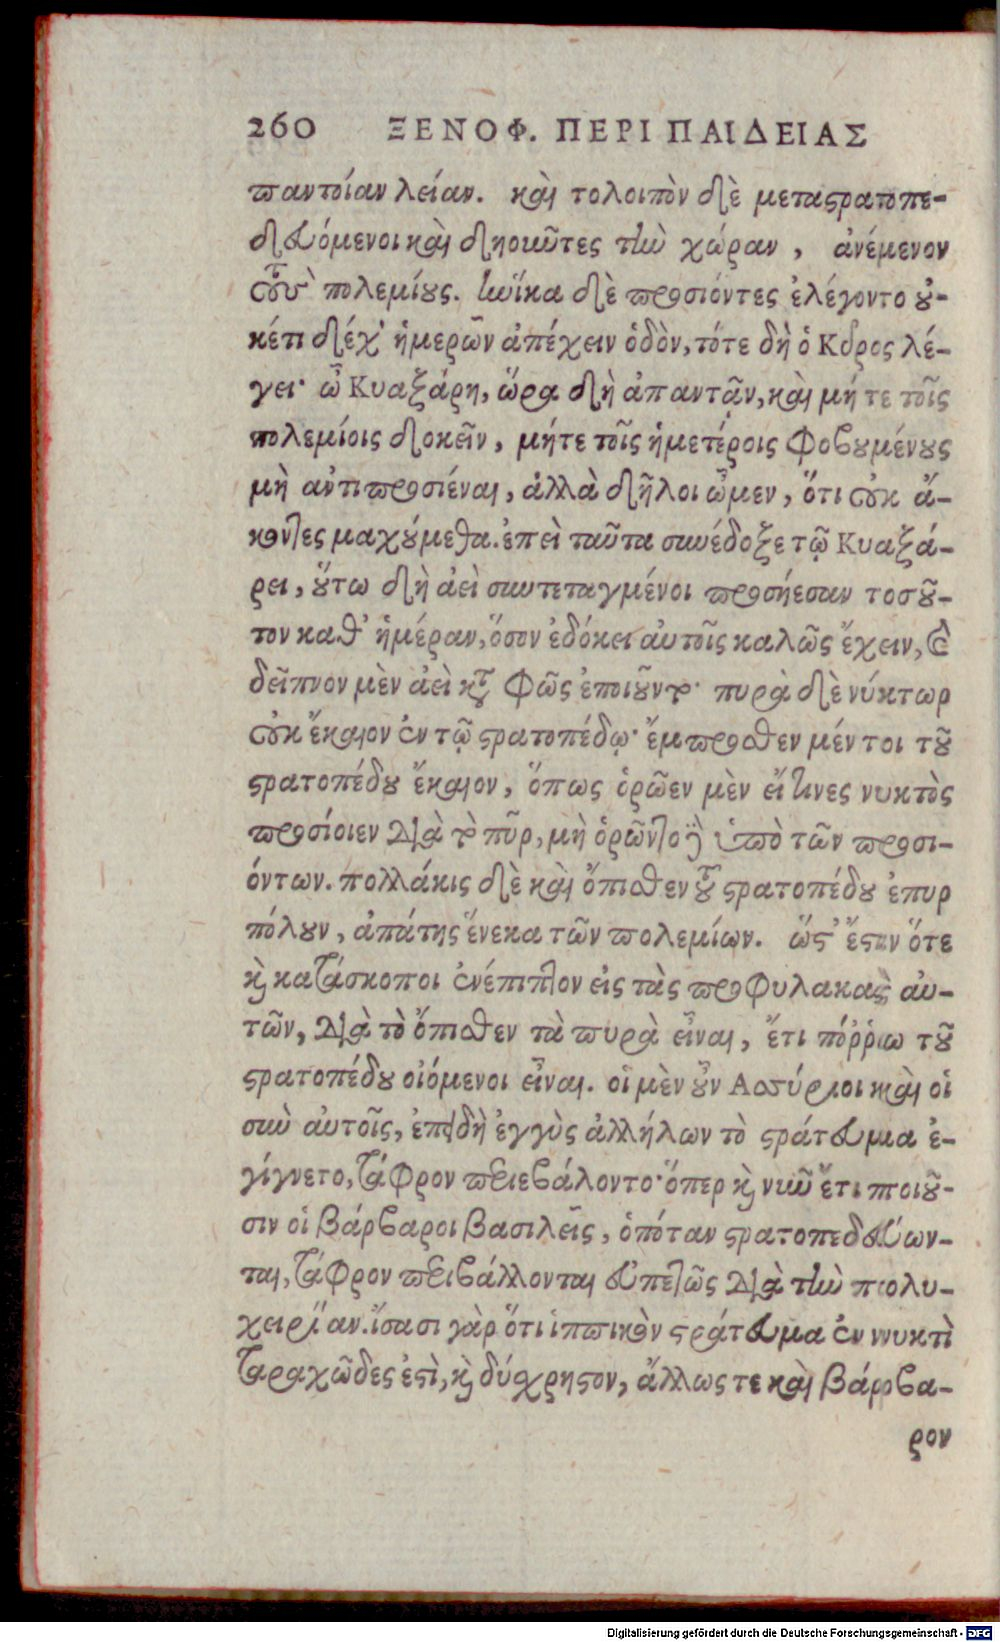 260 ΞΕΝΟΦ. ΠΕΡΙ ΠΑΙΔΕΙΑΣ
παντοίαν λείαν. καὶ τολοιπὸν δὲ μεταϛρατοπε-
δευόμενοι καὶ δῃοῦντες τὴν χώραν, ἀνέμενον
τοὺς πολεμίους. ἡνίκα δὲ προσιόντες ἐλέγοντο οὐ-
κέτι δέχ' ἡμερῶν ἀπέχειν ὁδὸν, τότε δὴ ὁ Κῦρος λέ-
γει· ὦ Κυαξάρη, ὥρα δὴ ἀπαντᾷν, καὶ μή τε τοῖς
πολεμίοις δοκεῖν, μήτε τοῖς ἡμετέροις φοβουμένους
μὴ ἀντιπροσιέναι, ἀλλὰ δῆλοι ὦμεν, ὅτι οὐκ ἄ-
κοντες μαχούμεθα. ἐπεὶ ταῦτα συνέδοξε τῷ Κυαξά-
ρει, οὕτω δὴ ἀεὶ συντεταγμένοι προσήεσαν τοσοῦ-
τον καθ' ἡμέραν, ὅσον ἐδόκει αὐτοῖς καλῶς ἔχειν, καὶ
δεῖπνον μὲν ἀεὶ κατὰ φῶς ἐποιοῦντο· πυρὰ δὲ νύκτωρ
οὐκ ἔκαιον ἐν τῷ ϛρατοπέδῳ· ἔμπροσθεν μέντοι τοῦ
ϛρατοπέδου ἔκαιον, ὅπως ὁρῶεν μὲν εἴ τινες νυκτὸς
προσίοιεν διὰ τὸ πῦρ, μὴ ὁρῶντο δὲ ὑπὸ τῶν προσι-
όντων. πολλάκις δὲ καὶ ὄπισθεν τοῦ ϛρατοπέδου ἐπυρ
πόλουν, ἀπάτης ἕνεκα τῶν πολεμίων. ὥϛ' ἔϛιν ὅτε
καὶ κατάσκοποι ἐνέπιπτον εἰς τὰς προφυλακὰς αὐ-
τῶν, διὰ τὸ ὄπισθεν τὰ πυρὰ εἶναι, ἔτι πόῤῥω τοῦ
ϛρατοπέδου οἰόμενοι εἶναι. οἱ μὲν οὖν Ἀσσύριοι καὶ οἱ
σὺν αὐτοῖς, ἐπειδὴ ἐγγὺς ἀλλήλων τὸ ϛράτευμα ἐ-
γίγνετο, τάφρον περιεβάλοντο· ὅπερ καὶ νῦν ἔτι ποιοῦ-
σιν οἱ βάρβαροι βασιλεῖς, ὁπόταν ϛρατοπεδεύων-
ται, τάφρον περιβάλλονται εὐπετῶς διὰ τὴν πολυ-
χειρίαν. ἴσασι γὰρ ὅτι ἱππικὸν ϛράτευμα ἐν νυκτὶ
ταραχῶδες ἐϛὶ, καὶ δύσχρηϛον, ἄλλως τε καὶ βάρβα-
ρον
Digitalisierung gefördert durch die Deutsche Forschungsgemeinschaft - DFG